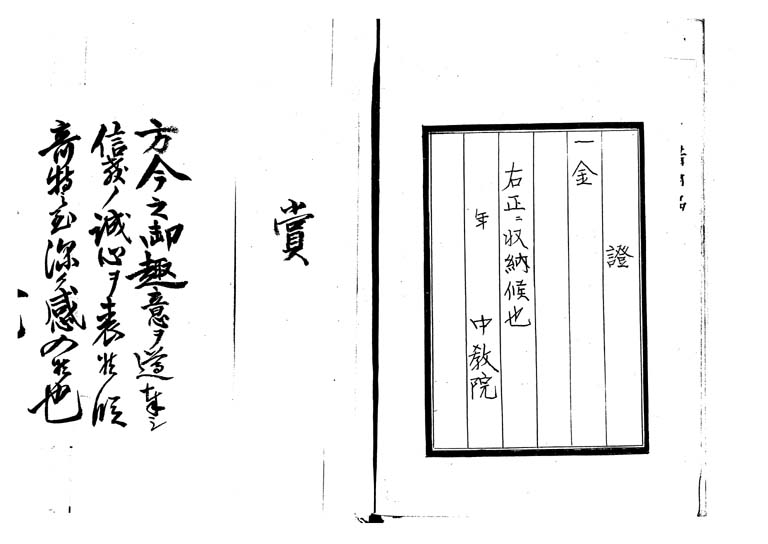 證
一金
右正ニ収納候也
年 中教院
賞
方今之御趣意ヲ遵奉シ
信義ノ誠心ヲ表
奇特 深ク感 也